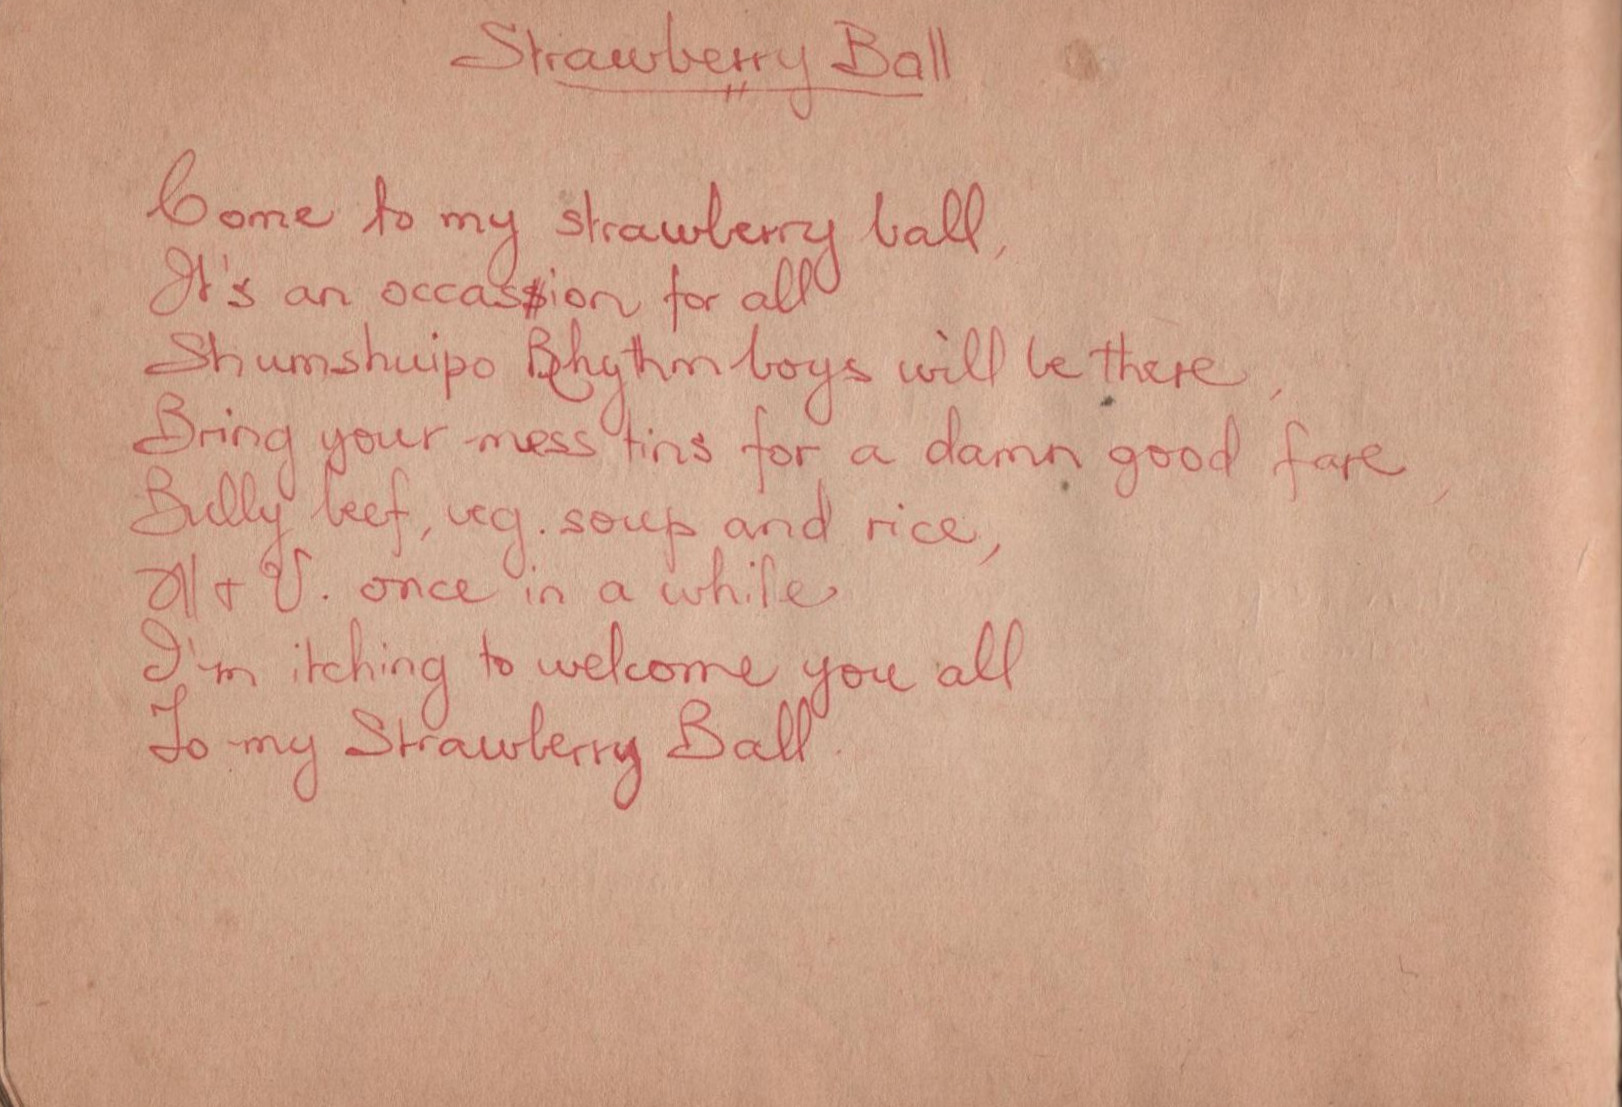 Strawberry Ball
Come to my strawberry ball,
It's an occassion for all
Shumshuipo Rhythm boys will be there,
Bring your mess tins for a damn good fare,
Bully beef, veg. soup and rice,
M + V. once in a while
I'm itching to welcome you all
To my Strawberry Ball.